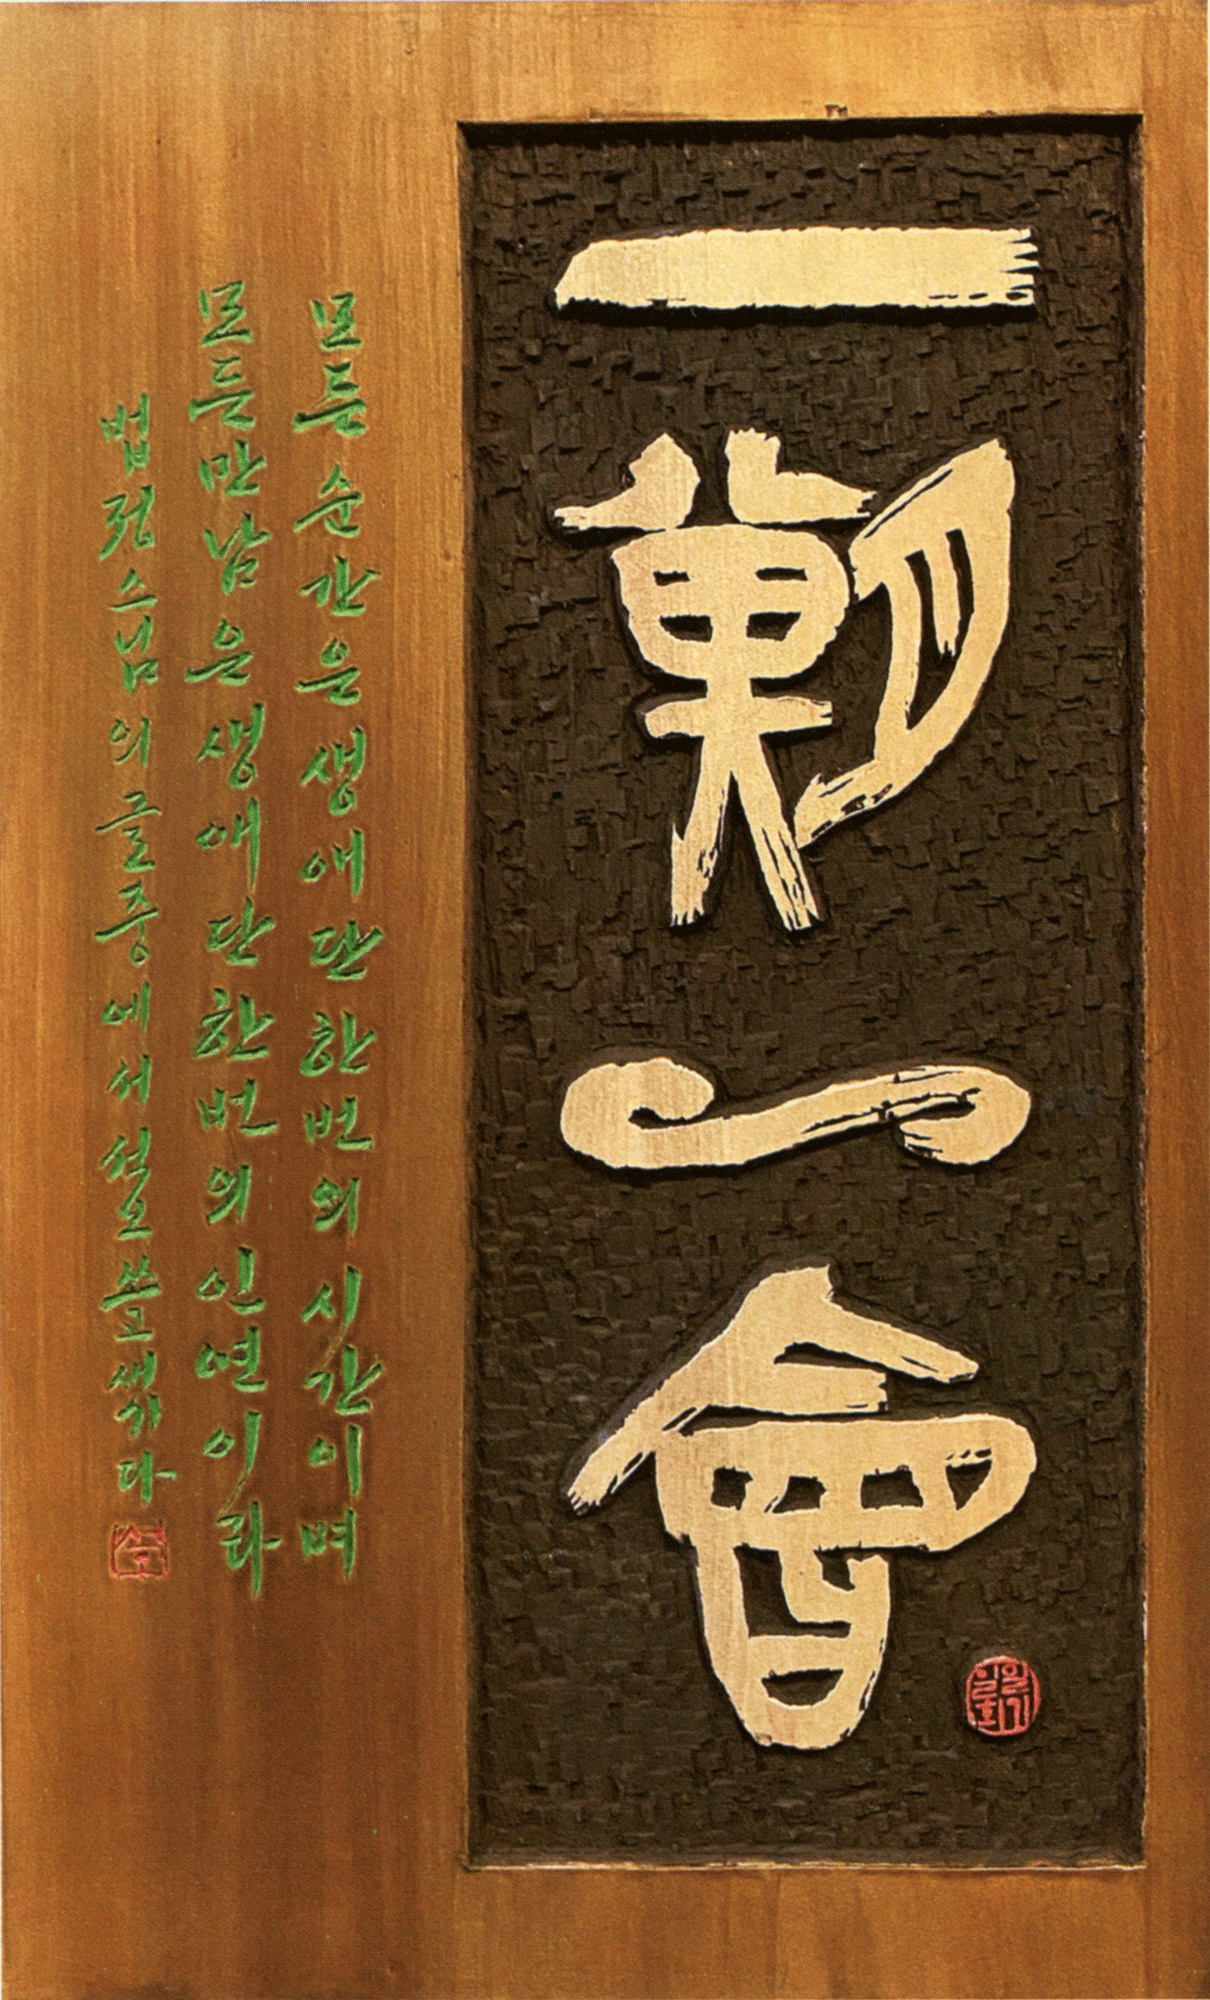 一期一會
일기일회
모든 순간은 생애 단 한번의 시간이며
모든 만남은 생애 단 한번의 인연이라
법정스님의 글 중에서 석오 쓰고 새기다